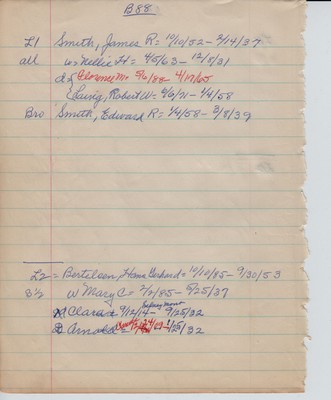 B88
L1 Smith, James R = 10/10/52 - 2/14/37
all w = Nellie H = 4/5/63 - 12/8/31
d { Clarence M = 5/6/88 - 4/17/65
{ Laing, Robert W = 6/6/71 - 1/4/58
Bro Smith, Edward R = 1/4/58 - 3/8/39
L2 = Bertelsen, Hans Gerhard = 10/10/85 - 9/30/53
S 1/2 w Mary C = 2/2/85 - 8/25/37
Clara = 9/12/14 - 9/25/32
Arnold = /25/32